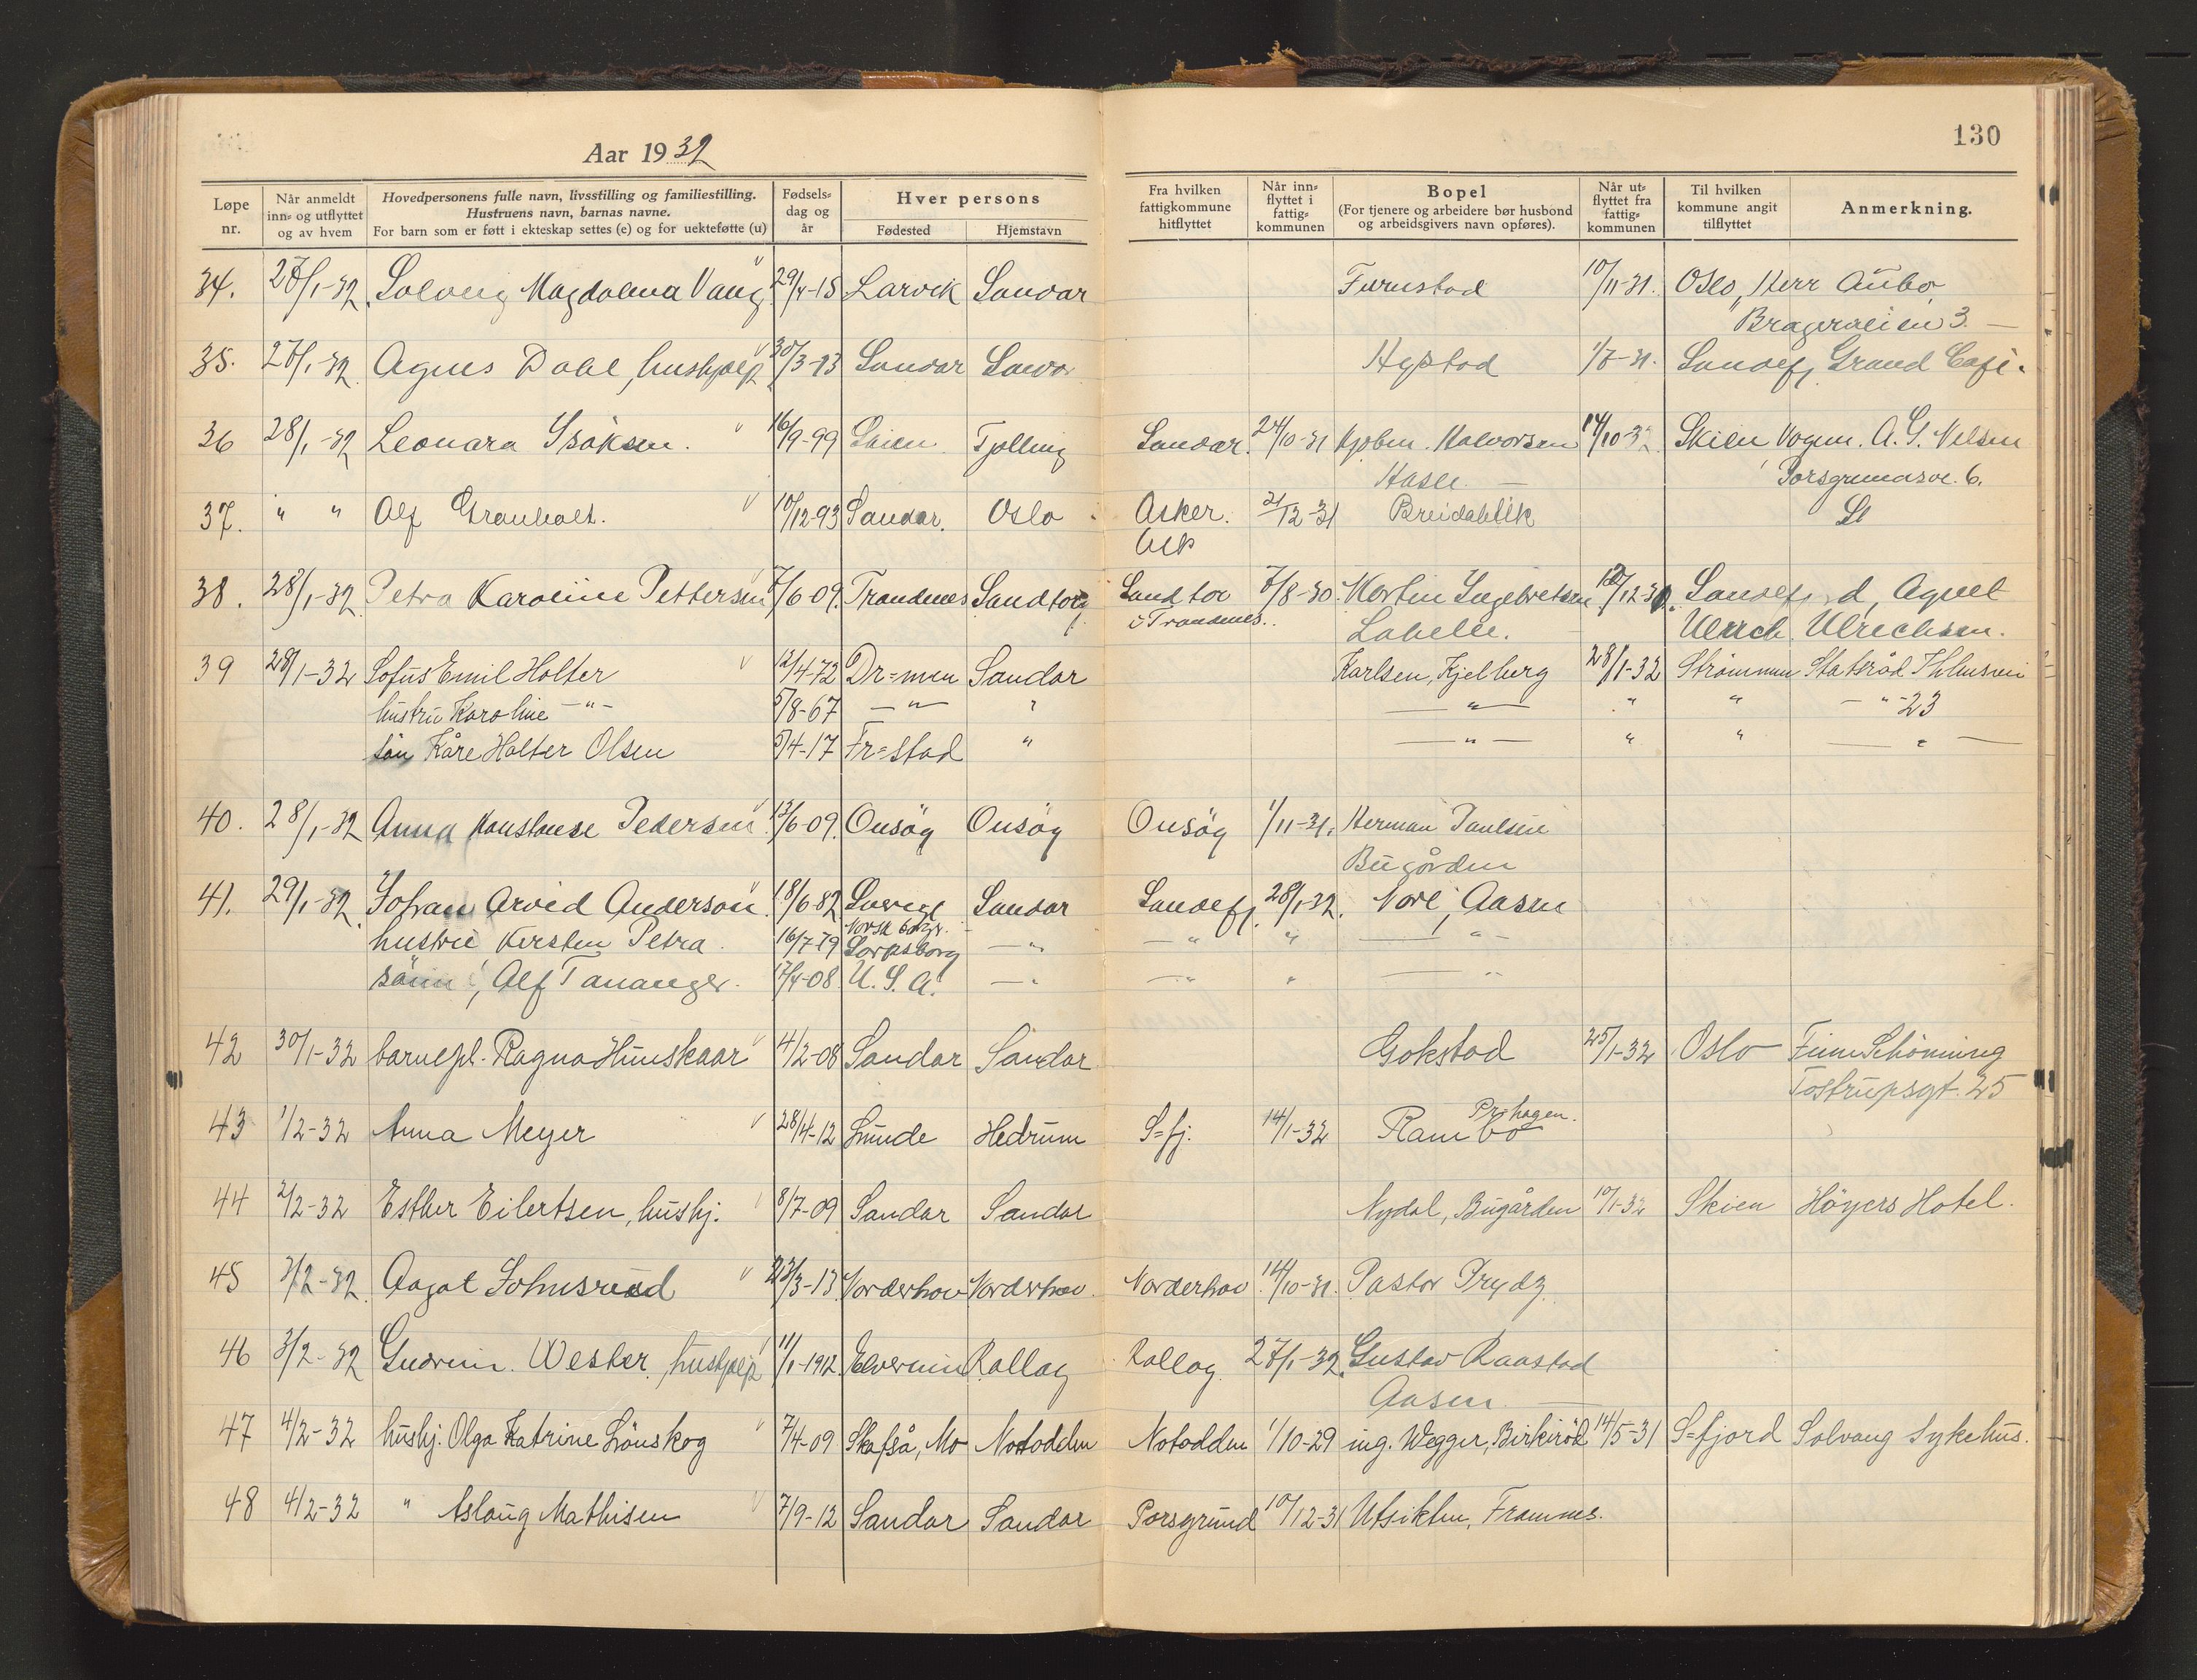 130
Aar 1932
Løpe nr. | Når anmeldt inn- og utflyttet og av hvem | Hovedpersonens fulle navn, livsstilling og familiestilling. Hustruens navn, barnas navne. For barn som er født i ekteskap settes (e) og for uekteføtte (u) | Fødsels- dag og år | Hver persons Fødested | Hjemstavn | Fra hvilken fattigkommune hitflyttet | Når inn- flyttet i fattig- kommunen | Bopel (For tjenere og arbeidere bør husbond og arbeidsgivers navn opføres). | Når ut- flyttet fra fattig- kommunen | Til hvilken kommune angit tilflyttet | Anmerkning.
34. 27/1-32. Solveig Magdalena Vaug 29/4-15 Larvik Sandar Furustad 10/11-31. Oslo, Herr Aubo
Bragerveien 3. —
35. 27/1-32. Agnes Dahl, hushjælp 30/3-13 Sandar Sandar Hystad 1/7-31. Sandefj. Grand Café.
36 28/1-32 Leonara Isaksen. 16/9-99 Skien Tjølling Sandar. 24/10-31 Kjøbm. Halvorsen 14/10-32. Skien Vognm. A. G. Nilsen
Hasle. — Porsgrunnsv. 6.
37. " " Alf Granholt. 10/12-93 Sandar. Oslo Asker. 31/12-31 Breidablik
38. 28/1-32. Petra Karoline Pettersen 7/6-09. Trondenes Sandtorg Sandtor 7/8-30. Martin Ingebretsen 12/12-31. Sandefj. d, Agnet
i Trondenes. Labelle. Ulrich. Ulrichsen.
39 28/1-32 Sofus Emil Holter 12/4-72 Dr=men Sandar Karlsen, Kjelberg 28/1-32 Strømmen Statsråd Ihlensvei
hustru Karoline —"— 5/8-67 —"— " —"— " " —"— 23
søn Kåre Holter Olsen 5/4-17 Fr=stad " —"— " " —"—
40. 28/1-32 Anna Konstanse Pedersen 13/6-09. Onsøy Onsøy Onsøy 1/11-31. Herman Paulsen
Bugården
41. 29/1-32. Johan Arvid Anderson 18/6-82 Sverige Sandar Sandefj. 28/1-32. Nore, Aasen
Norsk borgr.
hustru Kirsten Petra. 16/7-79 Sarpsborg —"— —"— " —"—
sønn, Alf Tananger. 17/4-08 U. S. A. —"— —"— " —"—
42 30/1-32 barnepl. Ragna Hunskaar 4/2-08 Sandar Sandar Gokstad 25/1-32 Oslo Finn Schönning
Tostrupsgt. 25
43 1/2-32 Anna Meyer 28/4-12 Lunde Hedrum S=fj. 14/1-32 Rambo Pr=hagen.
44 2/2-32 Esther Eilertsen, hushj. 8/7-09 Sandar Sandar Nydal, Bugården 10/1-32 Skien Höyers Hotel.
45 3/2-32. Aagot Johnsrud 23/3-13. Norderhov Norderhov. Norderhov 14/10-31. Pastor Prydz
46 3/2-32 Gudrun Wester, hushjælp 11/1-1912. Elverum Rollag Rollag 27/1-32. Gustav Raastad
Aasen
47 4/2-32 hushj. Olga Katrine Lönskog 7/4-09 Skafså, Mo Notodden Notodden 1/10-29 ing. Wegger, Birkeröd 14/5-31 S=fjord Solvang Sykehus.
48 4/2-32 " Aslaug Mathisen 7/9-12 Sandar Sandar Porsgrund 10/12-31 Utsikten, Framnes.